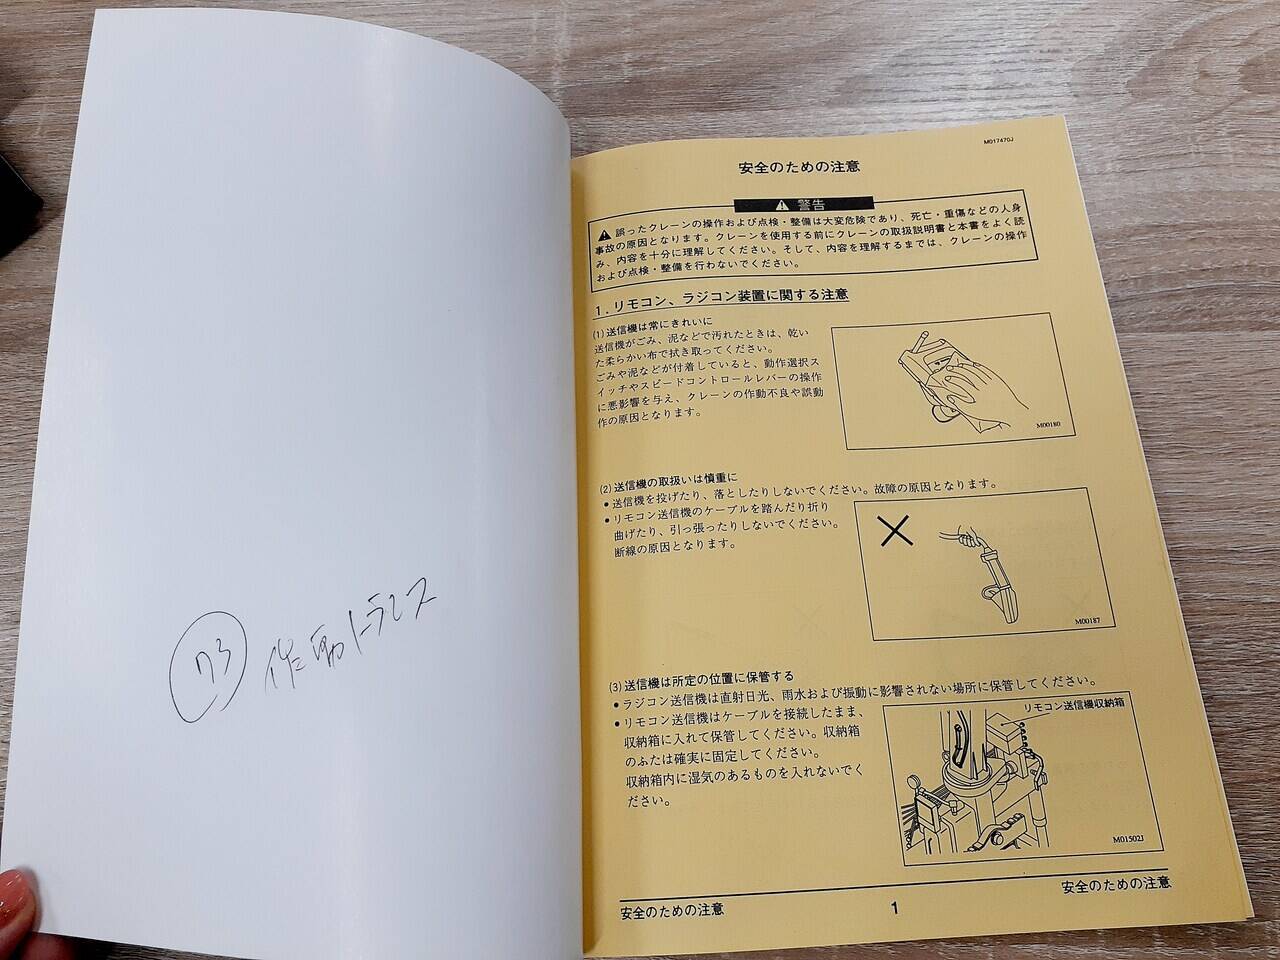 73 作動トランス
M017470J
安全のための注意
⚠ 警告
⚠ 誤ったクレーンの操作および点検・整備は大変危険であり、死亡・重傷などの人身
事故の原因となります。クレーンを使用する前にクレーンの取扱説明書と本書をよく読
み、内容を十分に理解してください。そして、内容を理解するまでは、クレーンの操作
および点検・整備を行わないでください。
1.リモコン、ラジコン装置に関する注意
(1)送信機は常にきれいに
送信機がごみ、泥などで汚れたときは、乾い
た柔らかい布で拭き取ってください。
ごみや泥などが付着していると、動作選択ス
イッチやスピードコントロールレバーの操作
に悪影響を与え、クレーンの作動不良や誤動
作の原因となります。
M00180
(2)送信機の取扱いは慎重に
●送信機を投げたり、落としたりしないでください。故障の原因となります。
●リモコン送信機のケーブルを踏んだり折り
曲げたり、引っ張ったりしないでください。
断線の原因となります。
M00187
(3)送信機は所定の位置に保管する
●ラジコン送信機は直射日光、雨水および振動に影響されない場所に保管してください。
●リモコン送信機はケーブルを接続したまま、
収納箱に入れて保管してください。収納箱
のふたは確実に固定してください。
収納箱内に湿気のあるものを入れないでく
ださい。
リモコン送信機収納箱
M01502J
安全のための注意
1
安全のための注意